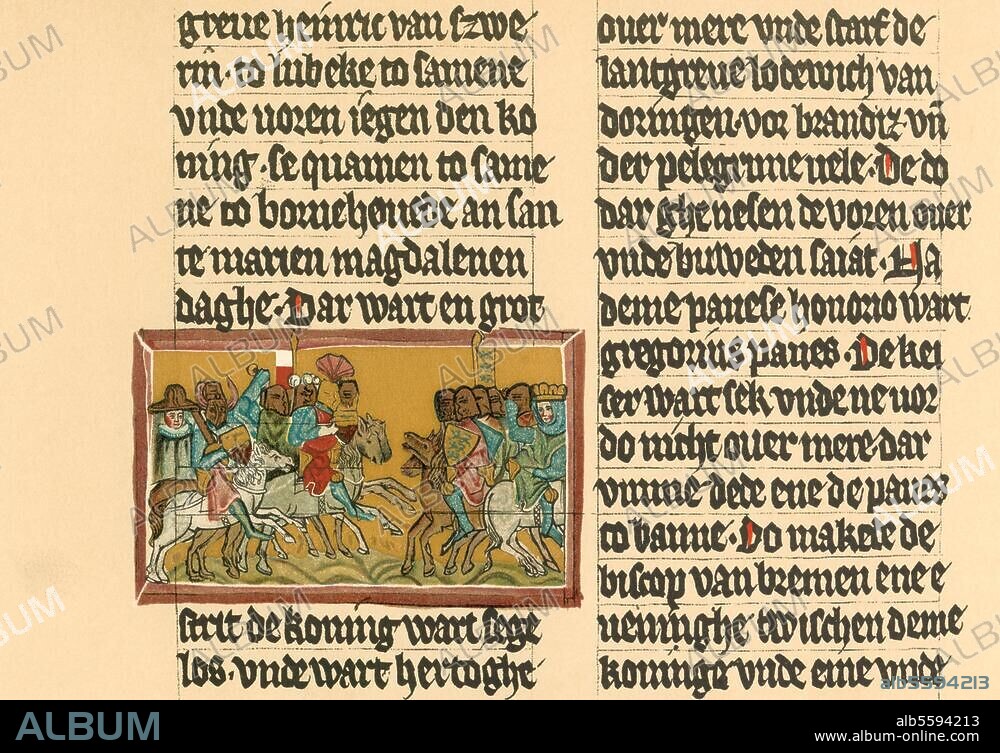 greue heinric van szwe
rin to lubeke to samene
vnde uoren iegen den ko
ning · se quamen to same
ne to bornehouede an san
te marien magdalenen
daghe · Dar wart en grot
strit de koning wart sege
los · vnde wart hertoghe
ouer mere vnde starf de
lantgreue lodewich van
doringen · vor brandiz · vn̄
der pelegrime uele · De do
dar ghenesen de voren ouer
vnde buweden saiat · Na
deme pauese honorio wart
gregorius paues · De kei
ser wart sek vnde ne uor
do nicht ouer mere · dar
vmme dede ene de paues
to banne · Do makete de
biscop van bremen ene e
ueninghe twischen deme
koninge vnde eme vnde
alb5594213
ALBUM
alb5594213
www.album-online.com